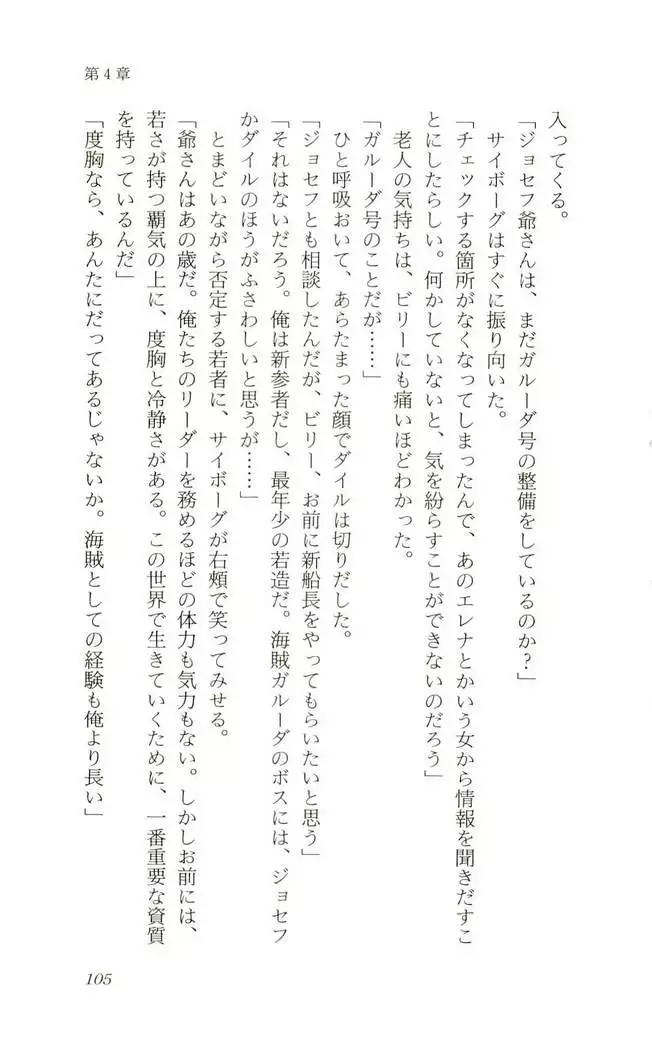 第4章
入ってくる。
「ジョセフ爺さんは、まだガルーダ号の整備をしているのか?」
サイボーグはすぐに振り向いた。
「チェックする箇所がなくなってしまったんで、あのエレナとかいう女から情報を聞きだすこ
とにしたらしい。何かしていないと、気を紛らすことができないのだろう」
老人の気持ちは、ビリーにも痛いほどわかった。
「ガルーダ号のことだが……」
ひと呼吸おいて、あらたまった顔でダイルは切りだした。
「ジョセフとも相談したんだが、ビリー、お前に新船長をやってもらいたいと思う」
「それはないだろう。俺は新参者だし、最年少の若造だ。海賊ガルーダのボスには、ジョセフ
かダイルのほうがふさわしいと思うが……」
とまどいながら否定する若者に、サイボーグが右頬で笑ってみせる。
「爺さんはあの歳だ。俺たちのリーダーを務めるほどの体力も気力もない。しかしお前には、
若さが持つ覇気の上に、度胸と冷静さがある。この世界で生きていくために、一番重要な資質
を持っているんだ」
「度胸なら、あんたにだってあるじゃないか。海賊としての経験も俺より長い」
105